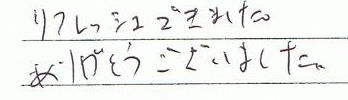 リフレッシュできました
ありがとうございました。